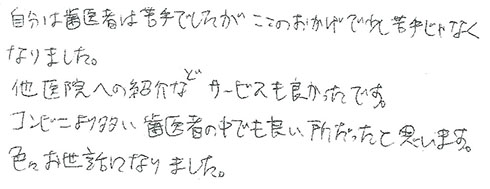 自分は歯医者は苦手でしたが ここのおかげで少し苦手じゃなく
なりました。
他医院への紹介など サービスも良かったです。
コンビニより多い 歯医者の中でも良い所だったと思います。
色々お世話になりました。